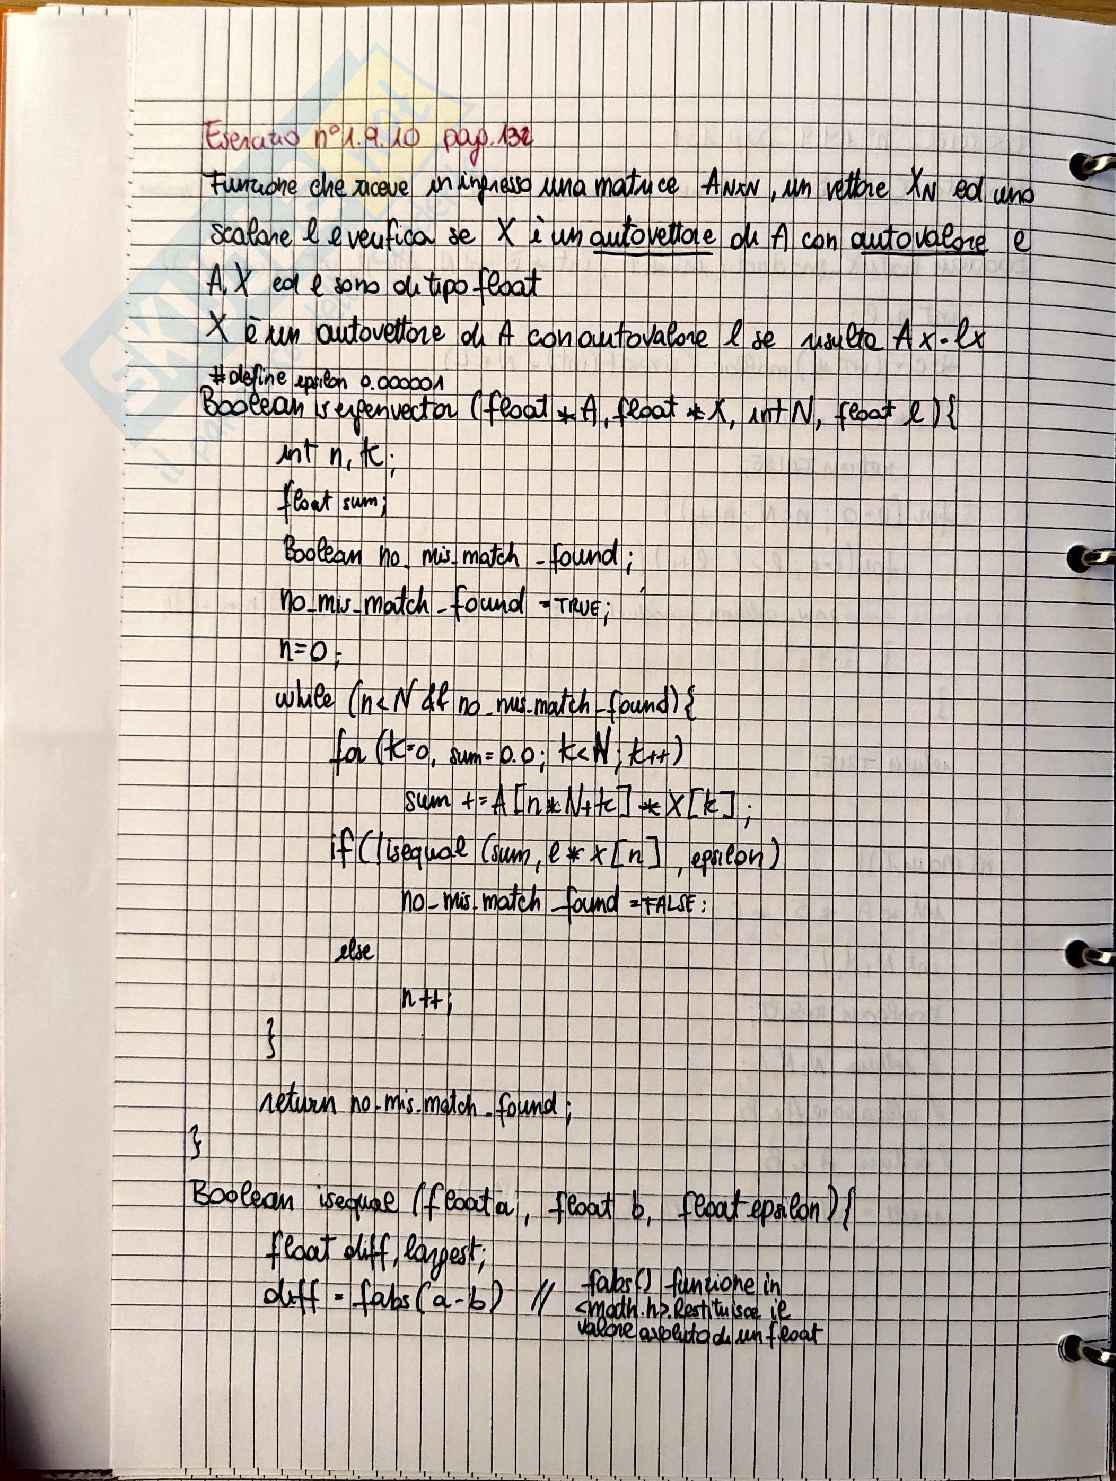 Esercizio n°1.9.10 pag.132
Funzione che riceve in ingresso una matrice ANXN, un vettore XN ed uno
scalare l e verifica se X è un autovettore di A con autovalore l
A, X ed l sono di tipo float
X è un autovettore di A con autovalore l se risulta Ax=lx
#define epsilon 0.000001
Boolean iseigenvector (float *A, float *X, int N, float l){
int n, k;
float sum;
Boolean no_mis_match_found;
no_mis_match_found = TRUE;
n=0;
while (n<N && no_mis_match_found){
for (k=0, sum=0.0; k<N; k++)
sum += A[n*N+k] * X[k];
if(!isequal (sum, l*x[n], epsilon)
no_mis_match_found = FALSE;
else
n++;
}
return no_mis_match_found;
}
Boolean isequal (float a, float b, float epsilon){
float diff, largest;
diff = fabs(a-b) // fabs() funzione in
<math.h>. Restituisce il
valore assoluto di un float
SKUOLA